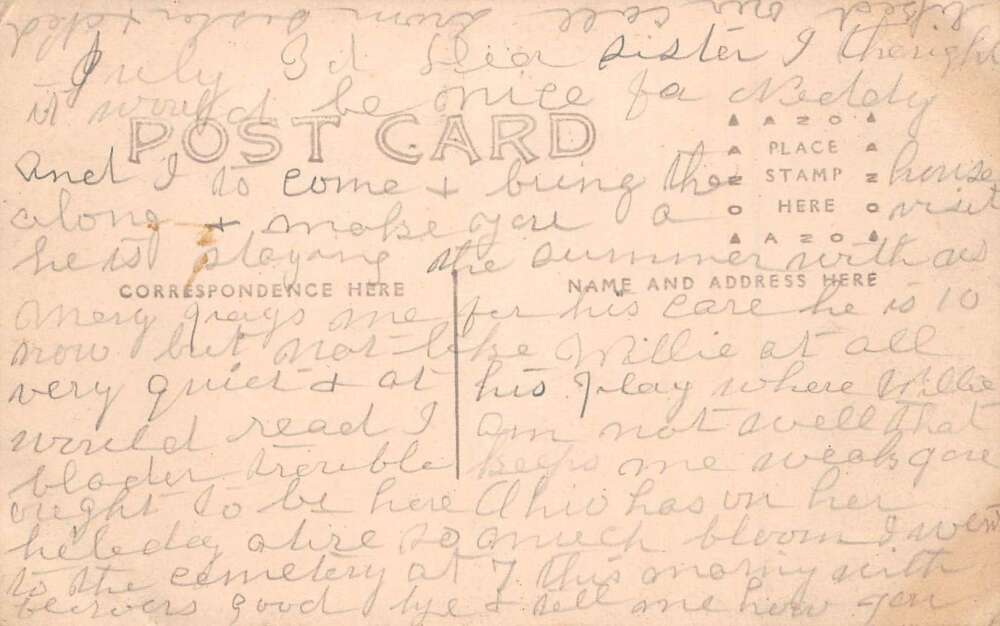 Truly 3d dear sister I thought
it would be nice fa Neddy
POST CARD
PLACE
STAMP
HERE
A A Z O A
and I to come + bring the house
along + make you a visit
he is staying the summer with us
CORRESPONDENCE HERE
NAME AND ADDRESS HERE
Mary pays me for his care he is 10
now but not like Willie at all
very quiet + at his play where Willie
would read I am not well that
blader trouble keeps me weak you
ought to be here Ohio has on her
holeday atire so much bloom I went
to the cemetery at 7 this morning with
good bye + tell me how you
our call from sister +